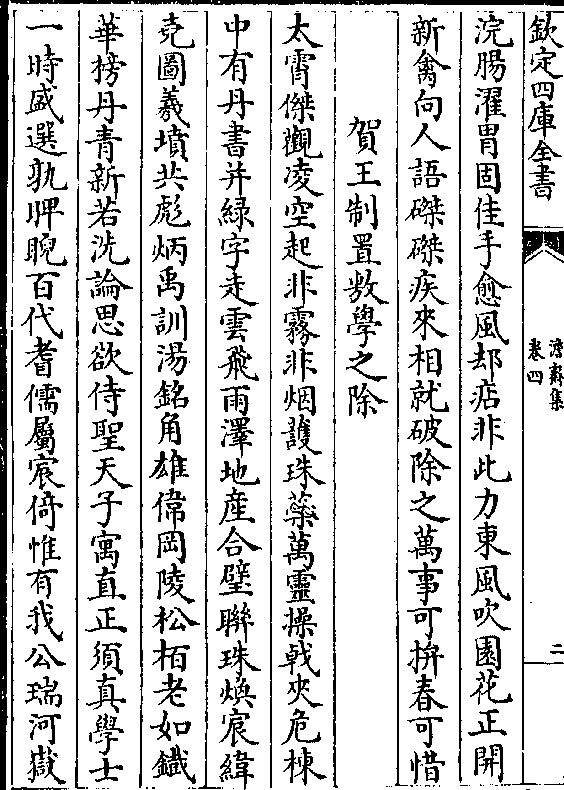 欽定四庫全書
澹齋集
卷四
二
浣腸濯胃固佳手愈風却痁非此力東風吹園花正開
新禽向人語磔磔疾來相就破除之萬事可拚春可惜
賀王制置敷學之除
太霄傑觀凌空起非霧非烟護珠蘂萬靈操㦸夾危棟
中有丹書并綠字走雲飛雨澤地産合璧聨珠煥宸緯
堯圖羲墳共彪炳禹訓湯銘角雄偉岡陵松栢老如鐵
華榜丹青新若洗論思欲侍聖天子寓直正須真學士
一時盛選孰睥睨百代耆儒屬宸倚惟有我公瑞河嶽